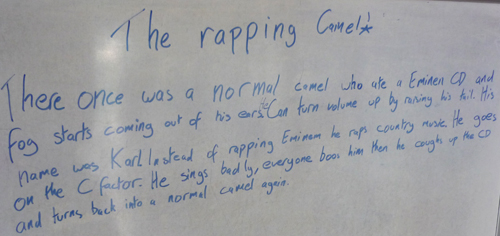 The rapping Camel!
There once was a normal camel who ate a Eminem CD and
fog starts coming out of his ears. Can turn volume up by raising his tail. His
name was Karl Instead of rapping Eminem he raps country music. He goes
on the C factor. He sings badly, everyone boos him then he coughs up the CD
and turns back into a normal camel again.